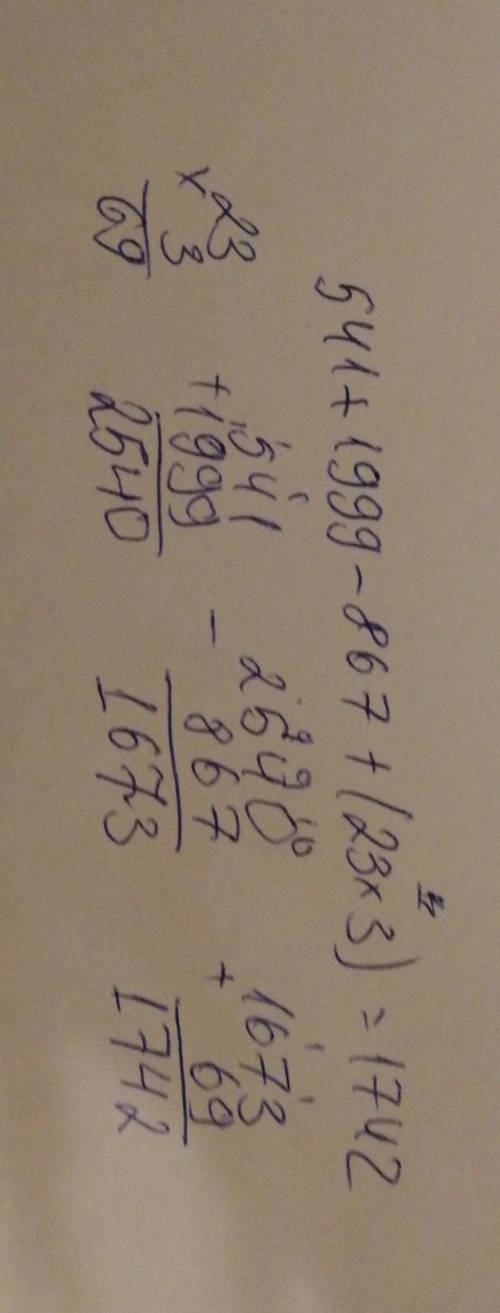 541+1999-867+(23x3)=1742
x 23
3
69
+ 541
1999
2540
- 2540
867
1673
+ 1673
69
1742